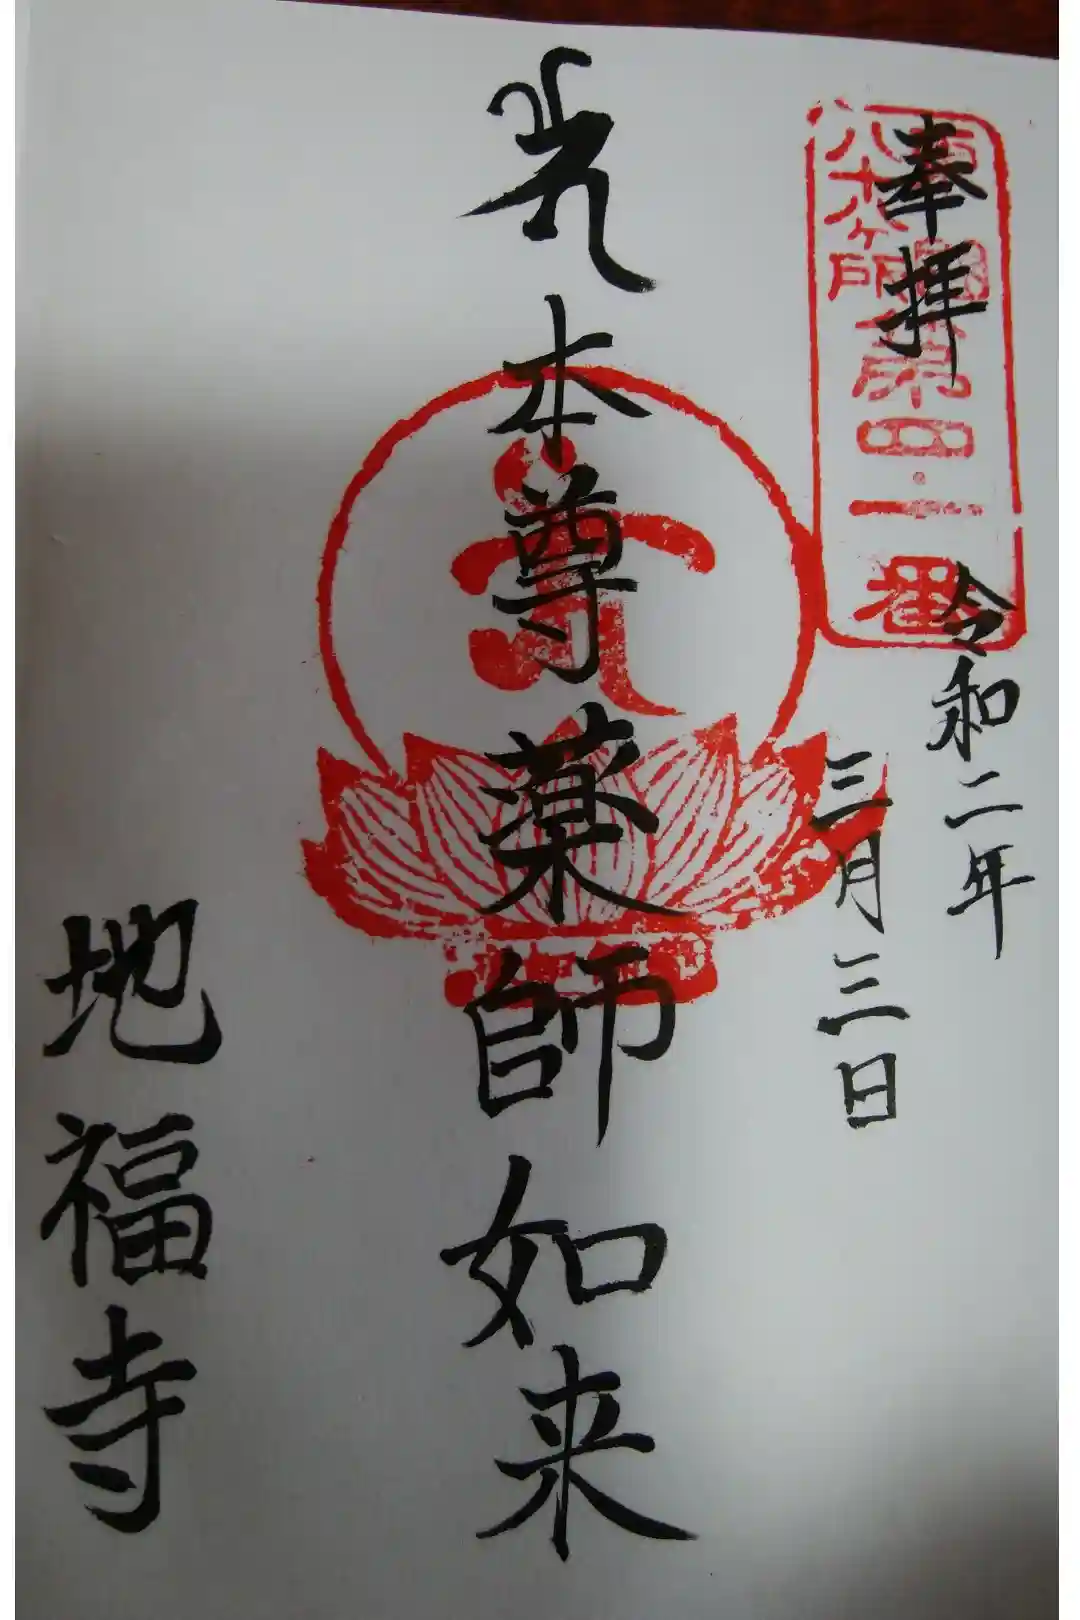 奉拝
八十八ヶ所
第四十一番
令和二年
三月三日
本尊薬師如来
地福寺